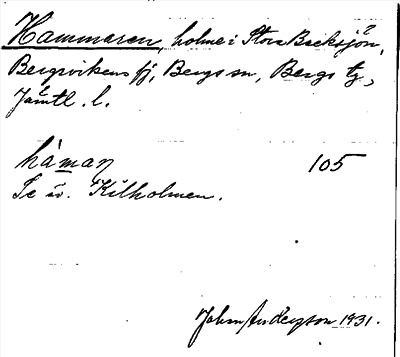 Hammaren, holme i Stora Backsjön,
Bergsvikens fj, Bergs sn, Bergs tg,
Jämtl. l.
hàman 105
Se äv. Kilholmen.
Johan Anderson 1931.